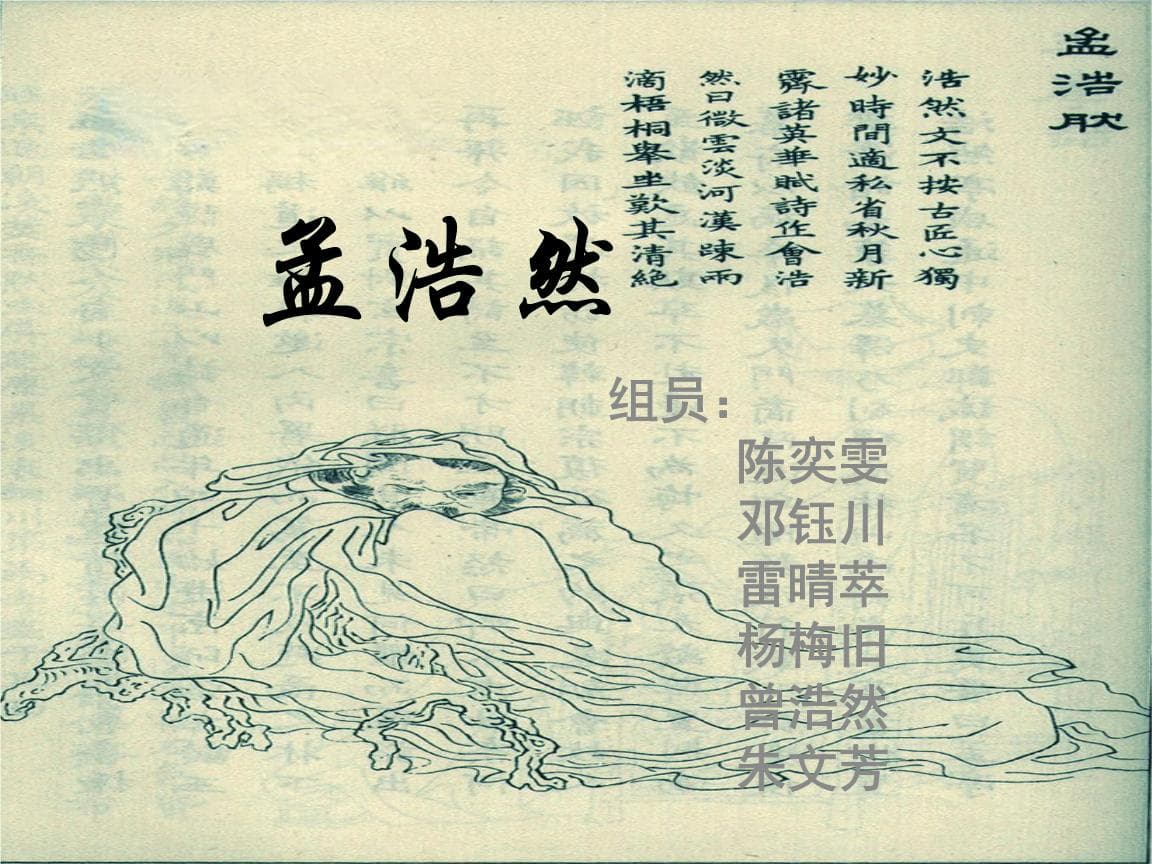 孟浩然
浩然文不按古匠心獨
妙時間適私省秋月新
霽諸英華賦詩作會浩
然曰微雲淡河漢疎雨
滴梧桐舉坐歎其清絕
孟浩然
组员：
陈奕雯
邓钰川
雷晴萃
杨梅旧
曾浩然
朱文芳